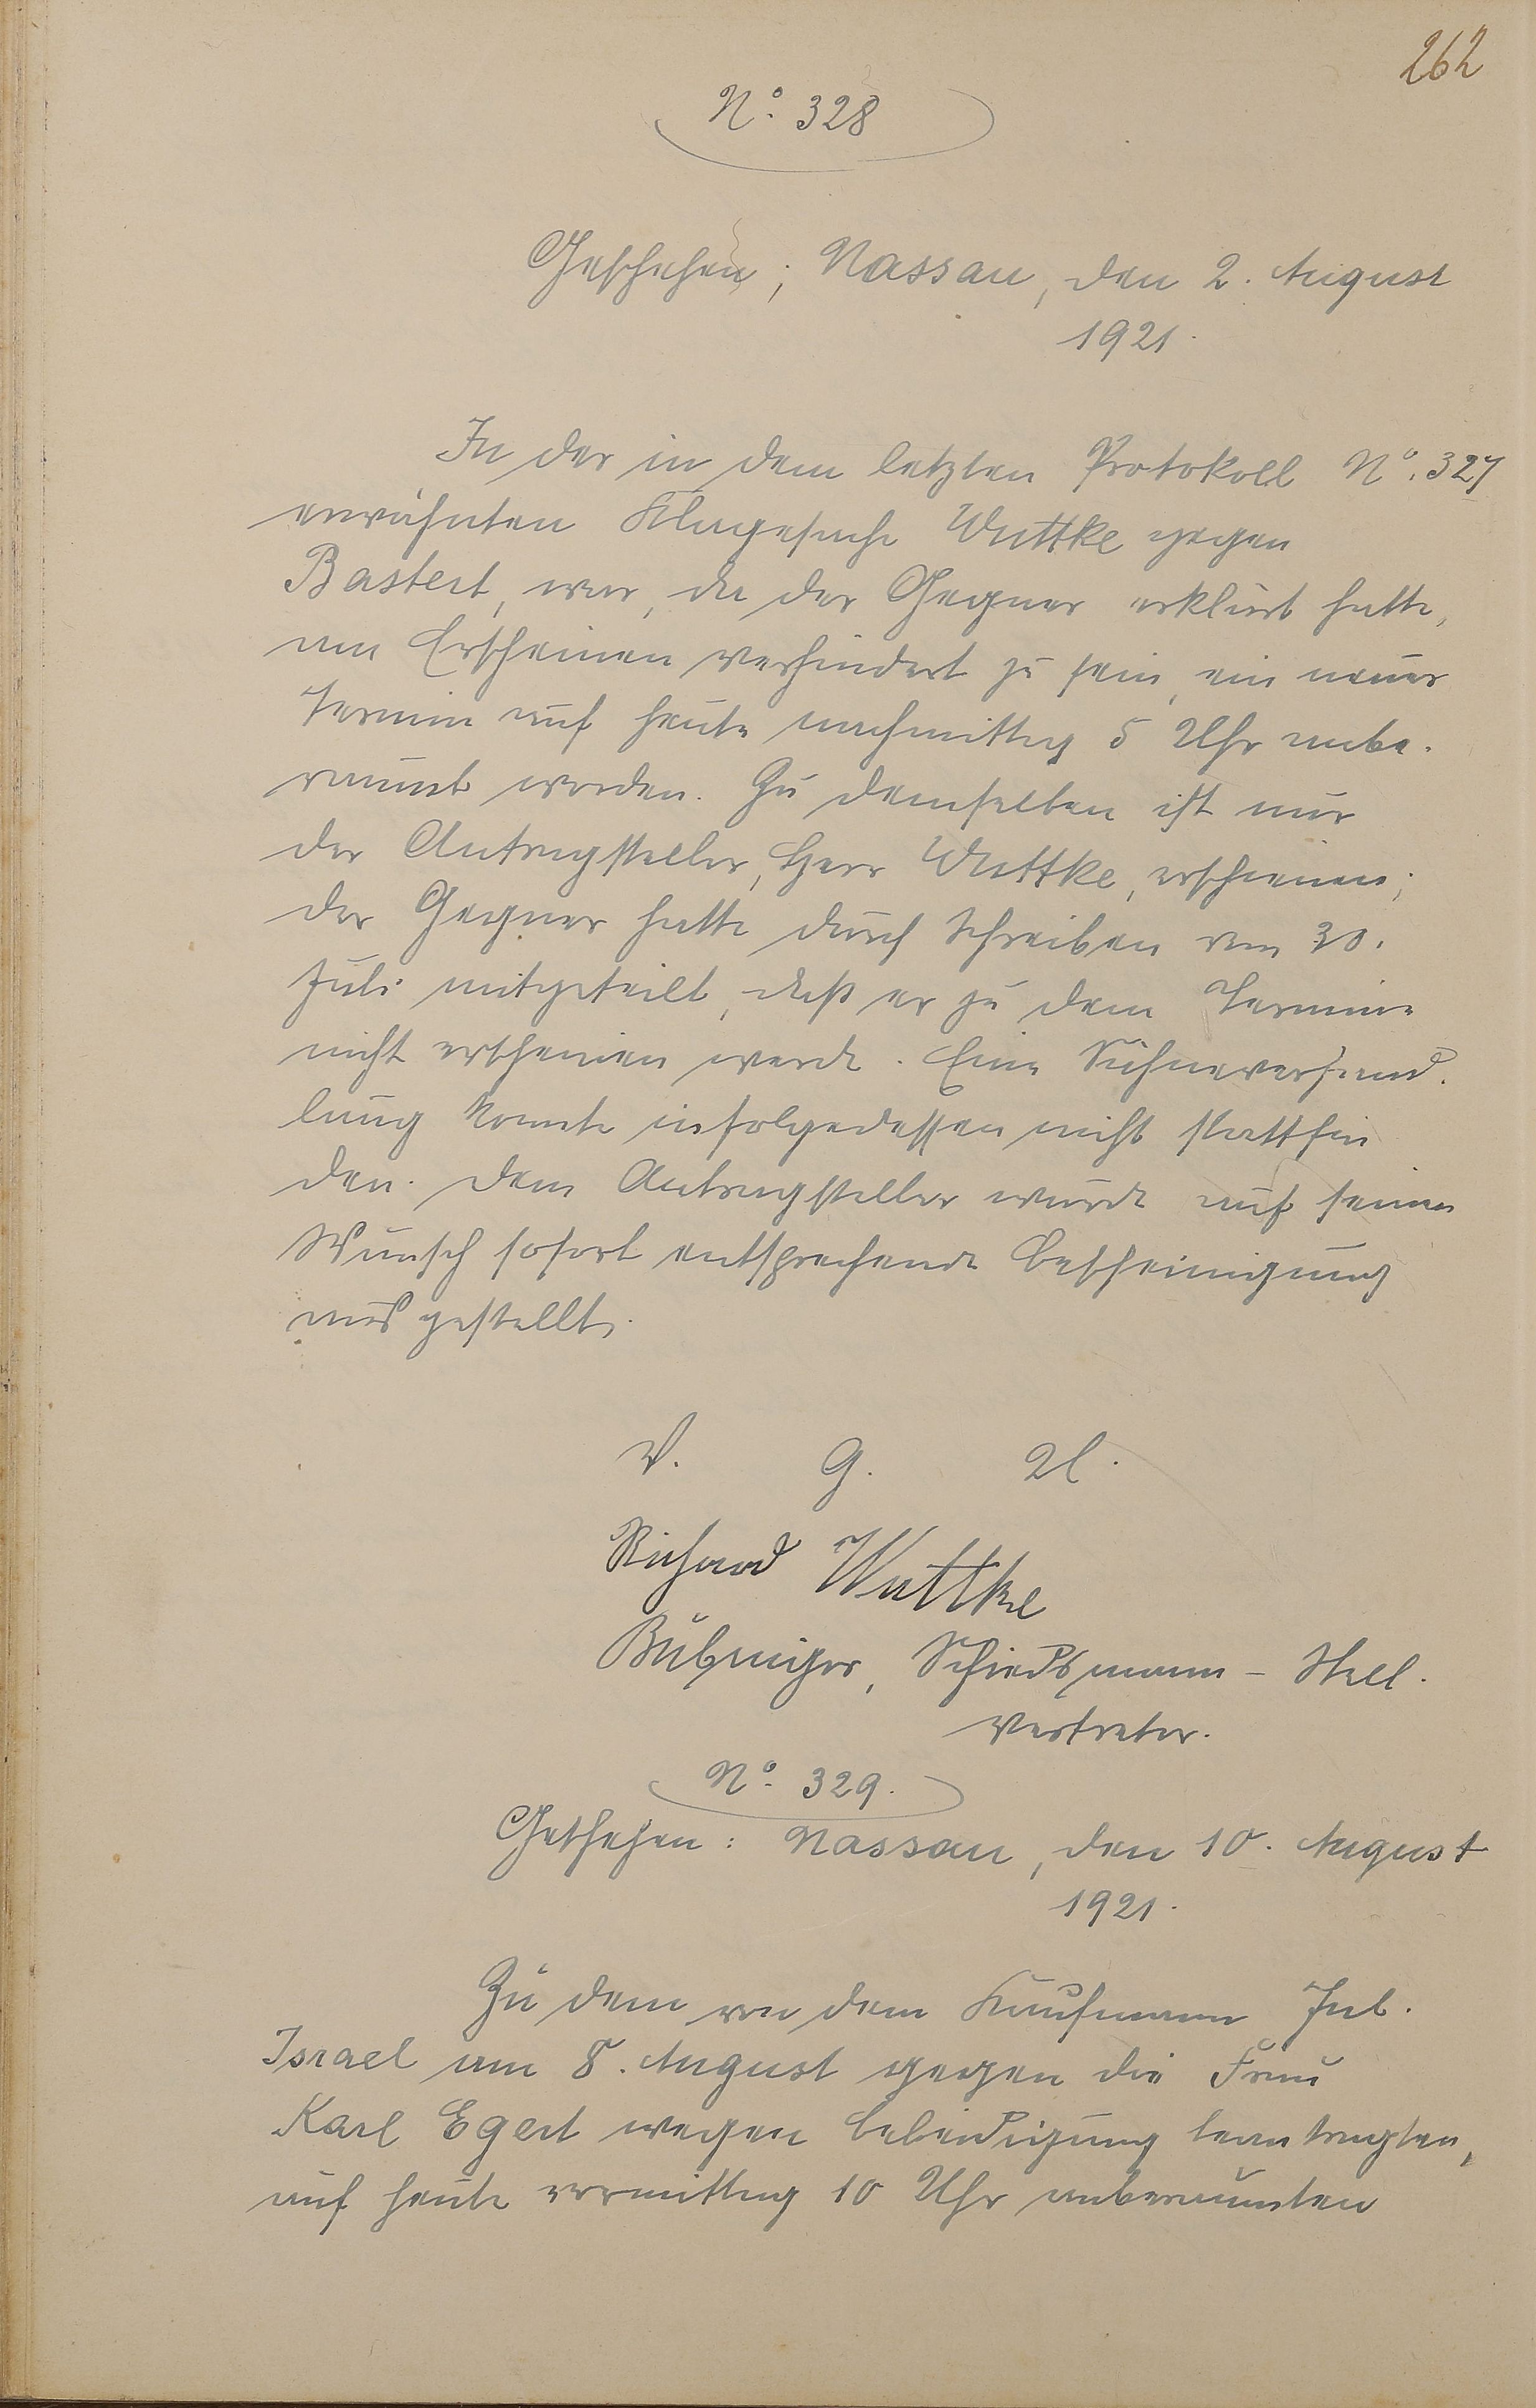 262
No. 328
Geschehen; Nassau, den 2. August
1921.
In der in dem letzten Protokoll No. 327
erwähnten Klagesache Wuttke gegen
Bastert, war, da der Gegner erklärt hatte,
am Erscheinen verhindert zu sein, ein neuer
Termin auf heute nachmittag 5 Uhr anbe-
raumt worden. Zu demselben ist nur
der Antragsteller, Herr Wuttke, erschienen;
der Gegner hatte durch Schreiben vom 30.
Juli mitgeteilt, daß er zu dem Termine
nicht erscheinen werde. Eine Sühneverhand-
lung konnte infolgedessen nicht stattfin
den. Dem Antragsteller wurde auf seinen
Wunsch sofort entsprechende Bescheinigung
ausgestellt.
V. G. U.
Richard Wuttke
Schiedsmann - Stell.
vertreter.
No. 329.
Geschehen: Nassau, den 10. August
1921.
Zu dem von dem Kaufmann Jul.
Israel am 8. August gegen die Frau
Karl Egert wegen Beleidigung beantragten,
auf heute vormittag 10 Uhr anberaumten